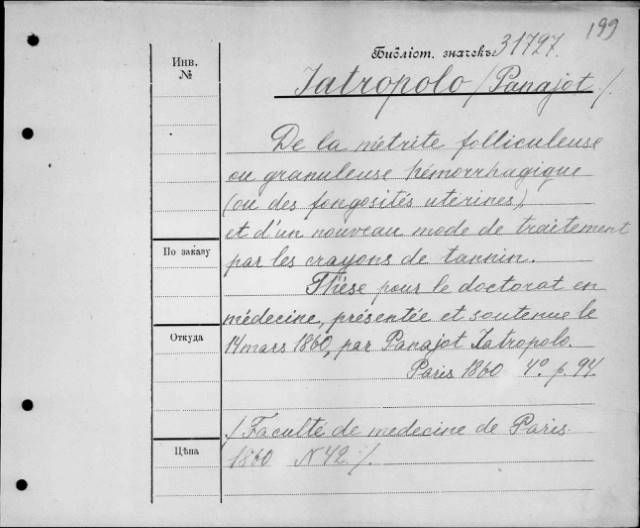 199
Библіот. значекъ 31797.
Инв.
№
Iatropolo /Panajot/.
De la métrite folliculeuse
ou granuleuse hémorrhagique
(ou des fongosités utérines),
et d'un nouveau mode de traitement
По заказу
par les crayons de tannin.
Thèse pour le doctorat en
médecine, présentée et soutenue le
Откуда
14 mars 1860, par Panajot Iatropolo.
Paris 1860 4° p. 94.
/Faculté de medecine de Paris
Цѣна
1860 N 42/.